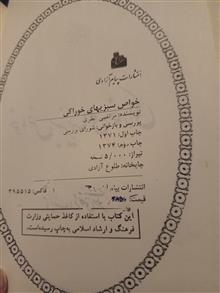 انتشارات پیام آزادی
خواص سبزیهای خوراکی
نویسنده: مرتضی نظری
بررسی و بازخوانی: شورای بررسی
چاپ اول: ۱۳۷۱
چاپ دوم: ۱۳۷۴
تیراژ: ۵/۰۰۰ نسخه
چاپخانه: طلوع آزادی
انتشارات پیام فاکس: ۳۹۵۵۱۵
قیمت:
این کتاب با استفاده از کاغذ حمایتی وزارت
فرهنگ و ارشاد اسلامی به‌چاپ رسیده‌است.